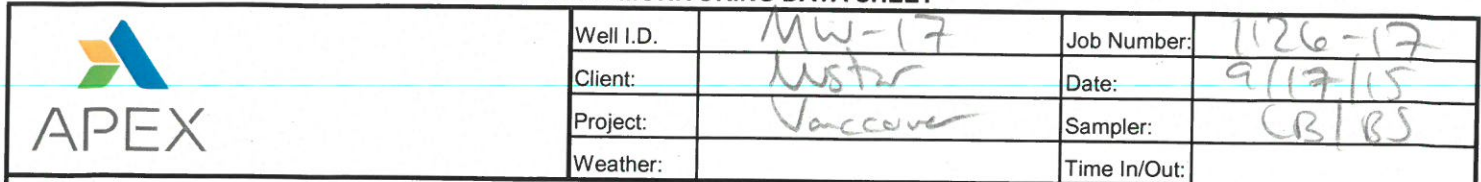 Well I.D. MW-17 Job Number: 1126-17
Client: Date: 9/17/15
APEX
Project: Vanccover Sampler: CB/BS
Weather: Time In/Out: